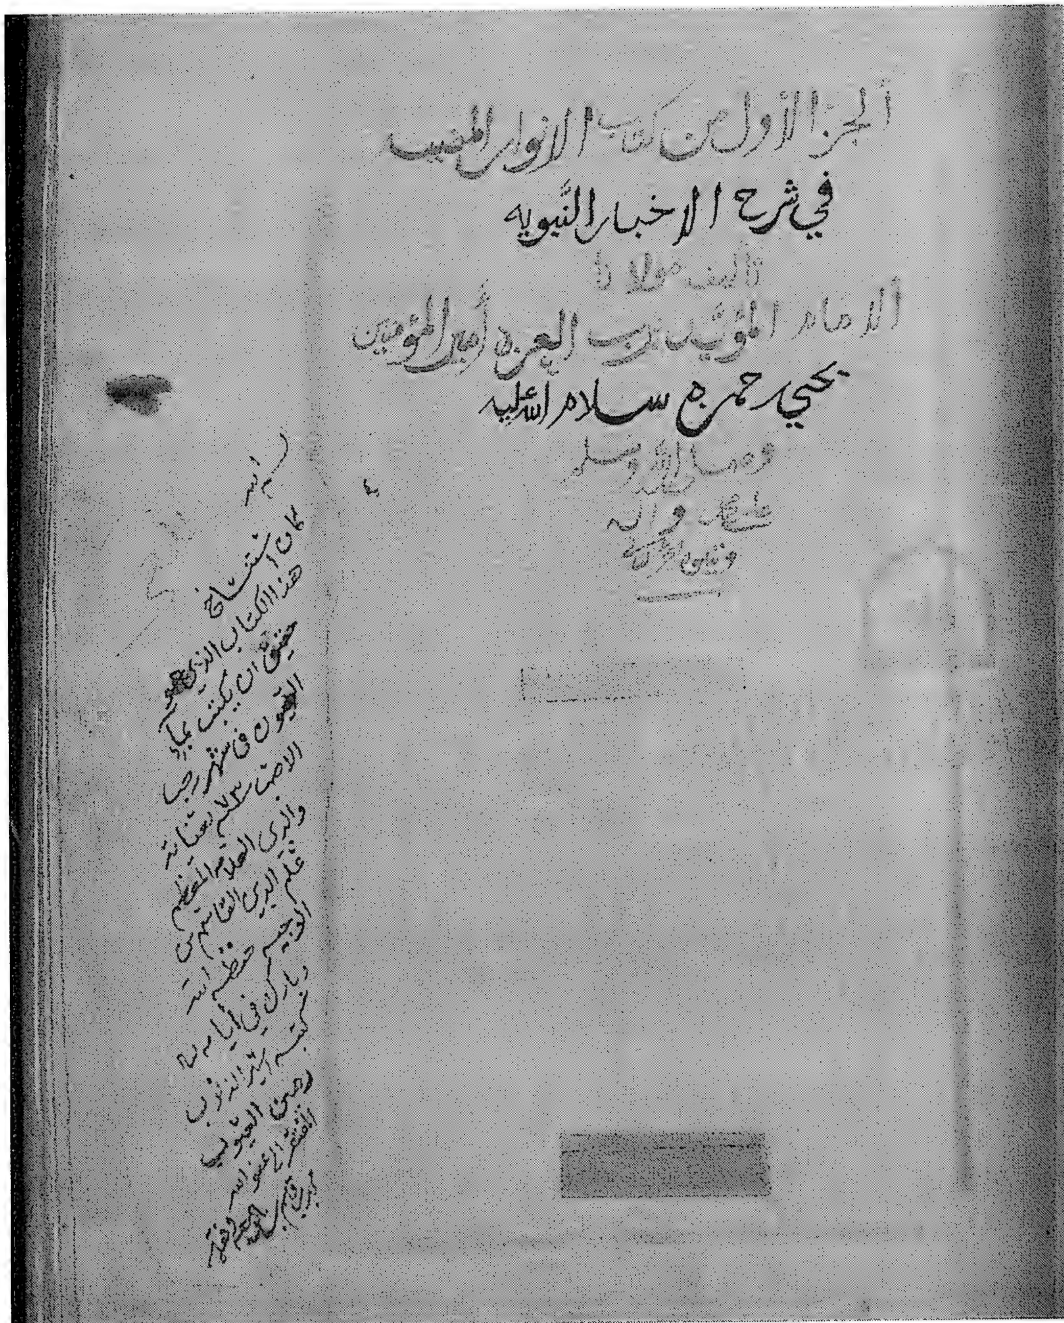 ألجزء الأول من كتاب الانوار المضيه
في شرح الاخبار النَّبويه
تاليف مولانا
ألامام المؤيد برب العزه أمير المؤمنين
يحيى حمزه سلام الله عليه
وصلى الله وسلم
على محمد واله
بسم الله
كان استنساخ
هذا الكتاب الذي هو
حقيق ان يكتب بماء
العيون في شهر رجب
الاصب بعناية
والدي العلامه المعظم
علم الدين القاسم بن
حفظه الله
وبارك في أيامه
كتبه اسير الذنوب
رهين العيوب
الفقير الى عفو الله